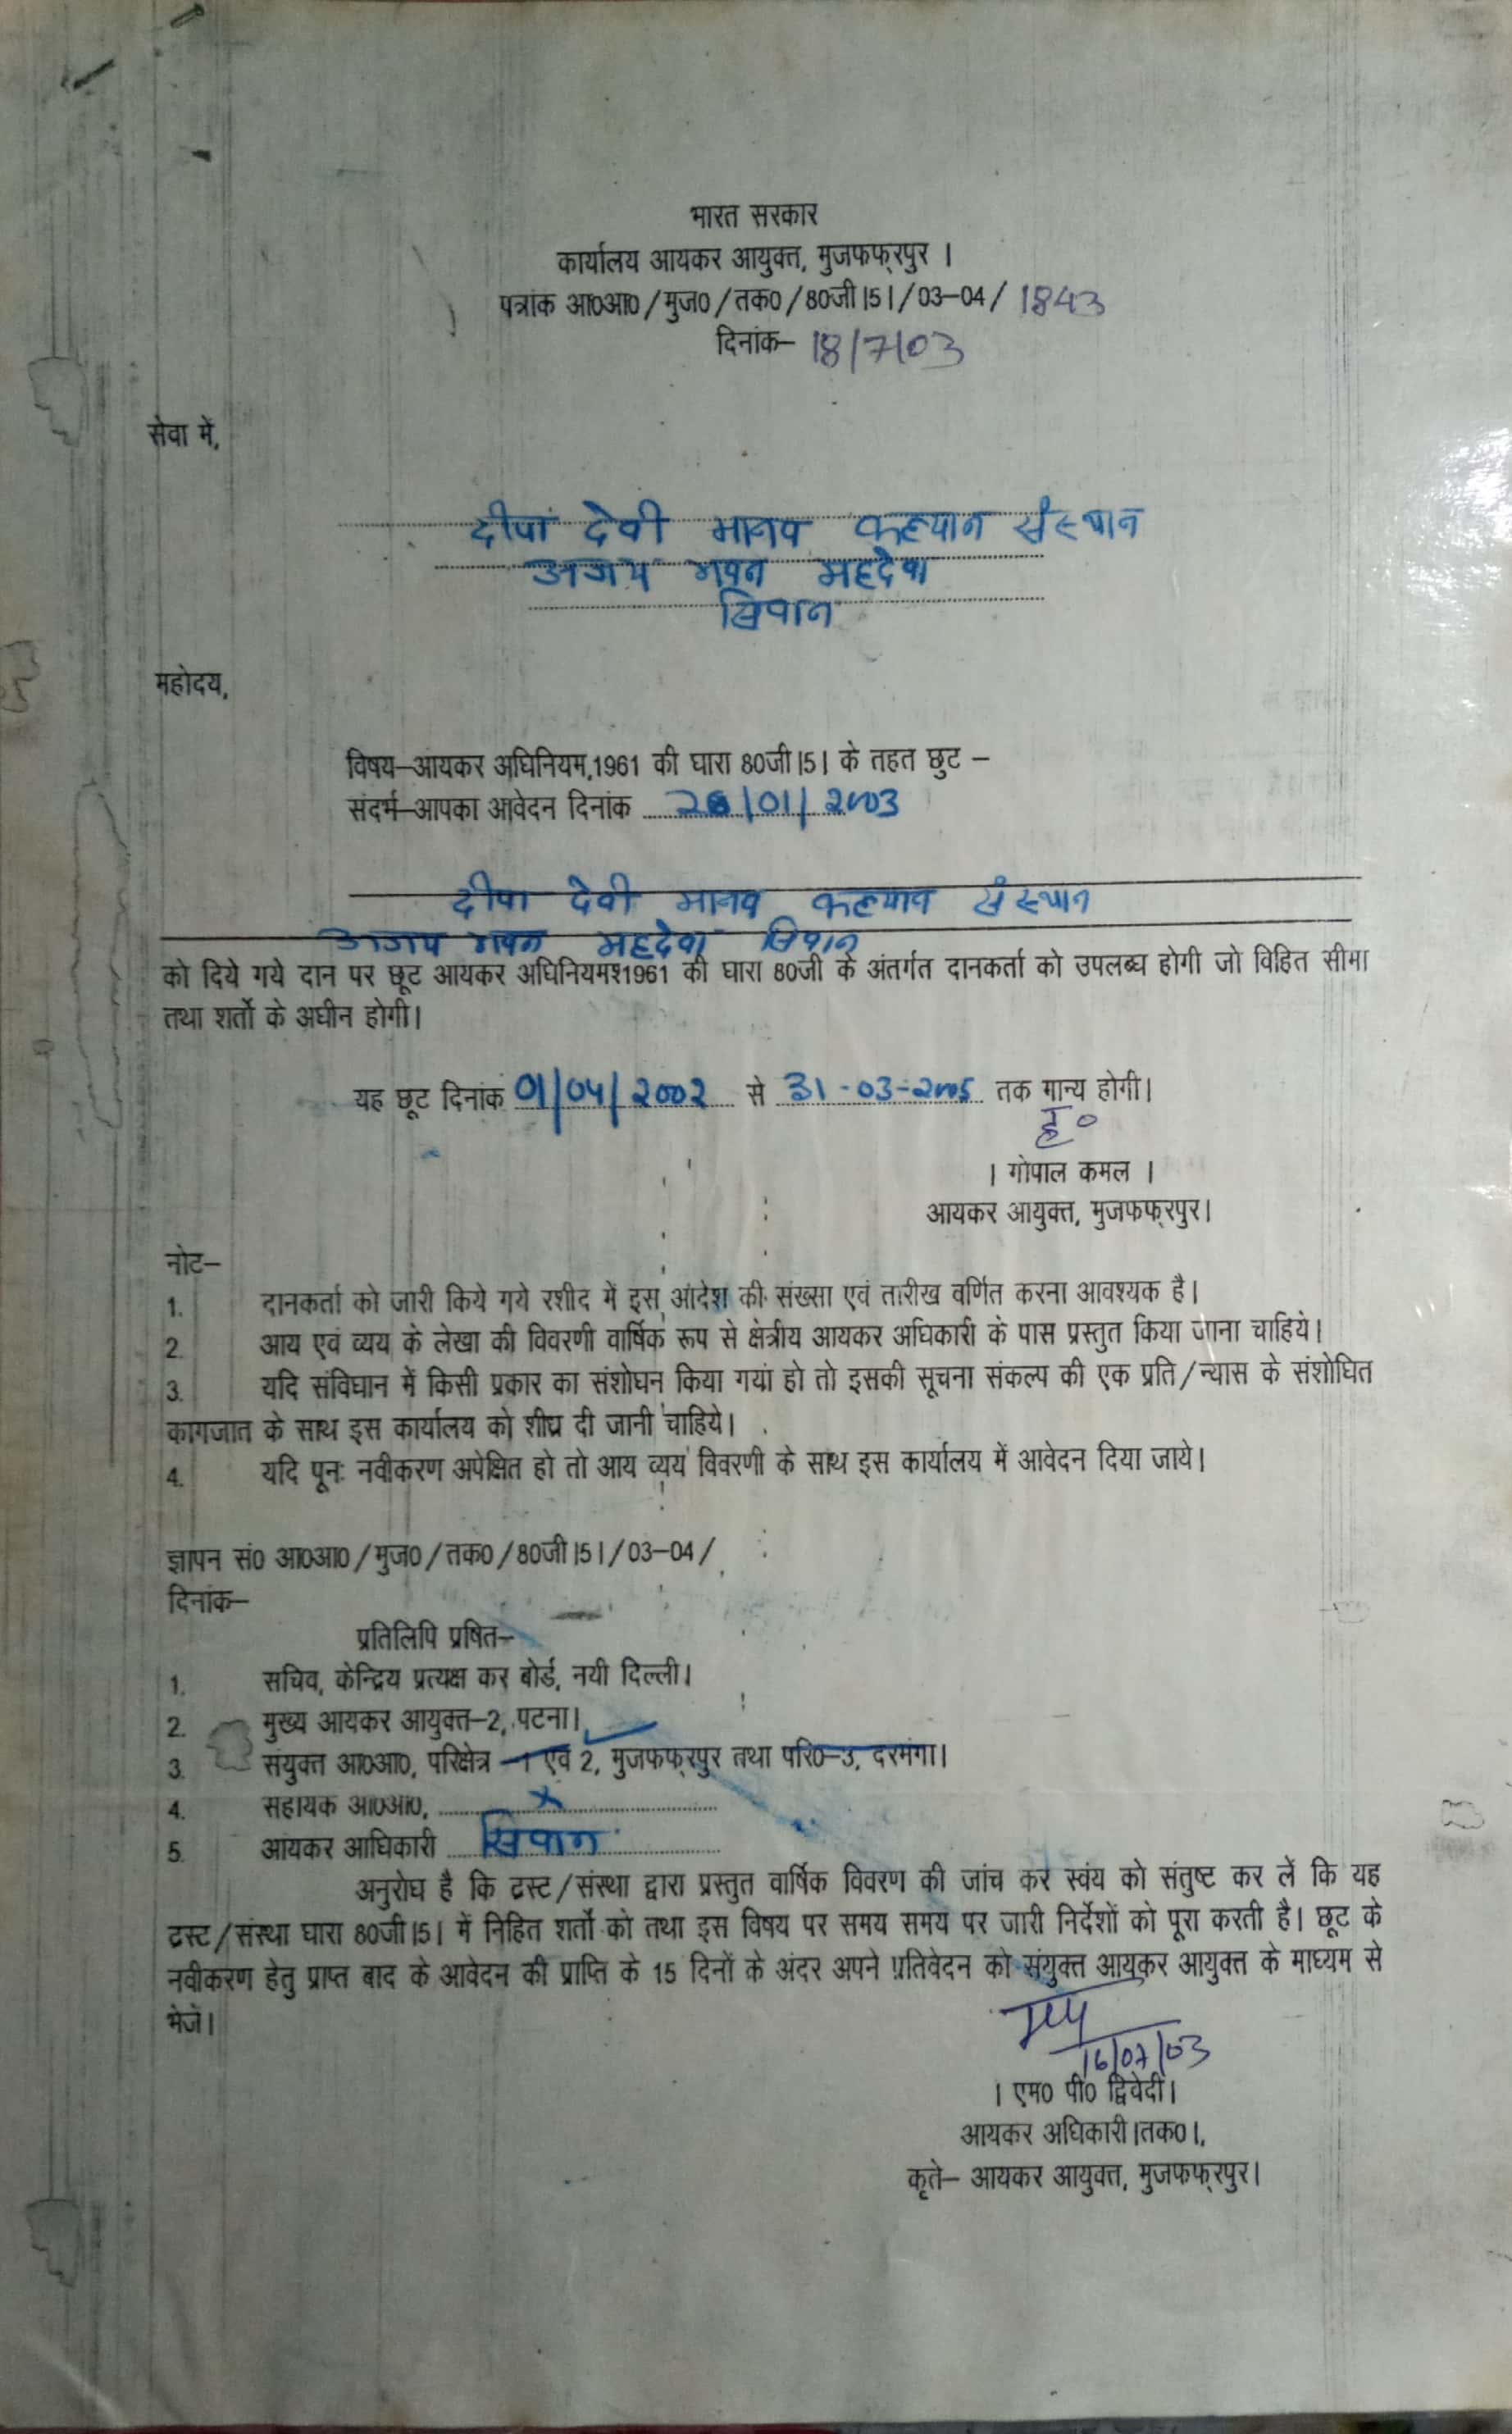 भारत सरकार
कार्यालय आयकर आयुक्त, मुजफफ्रपुर ।
पत्रांक आ0आ0/मुज0/तक0/80जी।5।/03-04/ 1843
दिनांक- 18/7/03
सेवा में,
दीपा देवी मानव कल्यान संस्थान
अजय भवन महदेवा
सिवान
महोदय,
विषय-आयकर अधिनियम,1961 की धारा 80जी।5। के तहत छुट -
संदर्भ-आपका आवेदन दिनांक /01/2003
दीपा देवी मानव कल्यान संस्थान
अजय भवन महदेवा सिवान
को दिये गये दान पर छूट आयकर अधिनियमश1961 की धारा 80जी के अंतर्गत दानकर्ता को उपलब्ध होगी जो विहित सीमा
तथा शर्तो के अधीन होगी।
यह छूट दिनांक 01/04/2002 से 31-03-2005 तक मान्य होगी।
ह०
। गोपाल कमल ।
आयकर आयुक्त, मुजफफ्रपुर।
नोट-
1. दानकर्ता को जारी किये गये रशीद में इस आंदेश की संख्सा एवं तारीख वर्णित करना आवश्यक है।
2. आय एवं व्यय के लेखा की विवरणी वार्षिक रूप से क्षेत्रीय आयकर अधिकारी के पास प्रस्तुत किया जाना चाहिये।
3. यदि संविधान में किसी प्रकार का संशोधन किया गया हो तो इसकी सूचना संकल्प की एक प्रति/न्यास के संशोधित
कागजात के साथ इस कार्यालय को शीघ्र दी जानी चाहिये।
4. यदि पूनः नवीकरण अपेक्षित हो तो आय व्यय विवरणी के साथ इस कार्यालय में आवेदन दिया जाये।
ज्ञापन सं0 आ0आ0/मुज0/तक0/80जी।5।/03-04/
दिनांक-
प्रतिलिपि प्रषित-
1. सचिव, केन्द्रिय प्रत्यक्ष कर बोर्ड, नयी दिल्ली।
2. मुख्य आयकर आयुक्त-2, पटना।
3. संयुक्त आ0आ0, परिक्षेत्र -1 एवं 2, मुजफफ्रपुर तथा परि0-3, दरभंगा।
4. सहायक आ0आ0, x
5. आयकर आधिकारी सिवान
अनुरोध है कि ट्रस्ट/संस्था द्वारा प्रस्तुत वार्षिक विवरण की जांच कर स्वंय को संतुष्ट कर लें कि यह
ट्रस्ट/संस्था धारा 80जी।5। में निहित शर्तो को तथा इस विषय पर समय समय पर जारी निर्देशों को पूरा करती है। छूट के
नवीकरण हेतु प्राप्त बाद के आवेदन की प्राप्ति के 15 दिनों के अंदर अपने प्रतिवेदन को संयुक्त आयकर आयुक्त के माध्यम से
भेजें।
16/07/03
। एम0 पी0 द्विवेदी।
आयकर अधिकारी।तक0।,
कृते- आयकर आयुक्त, मुजफफ्रपुर।